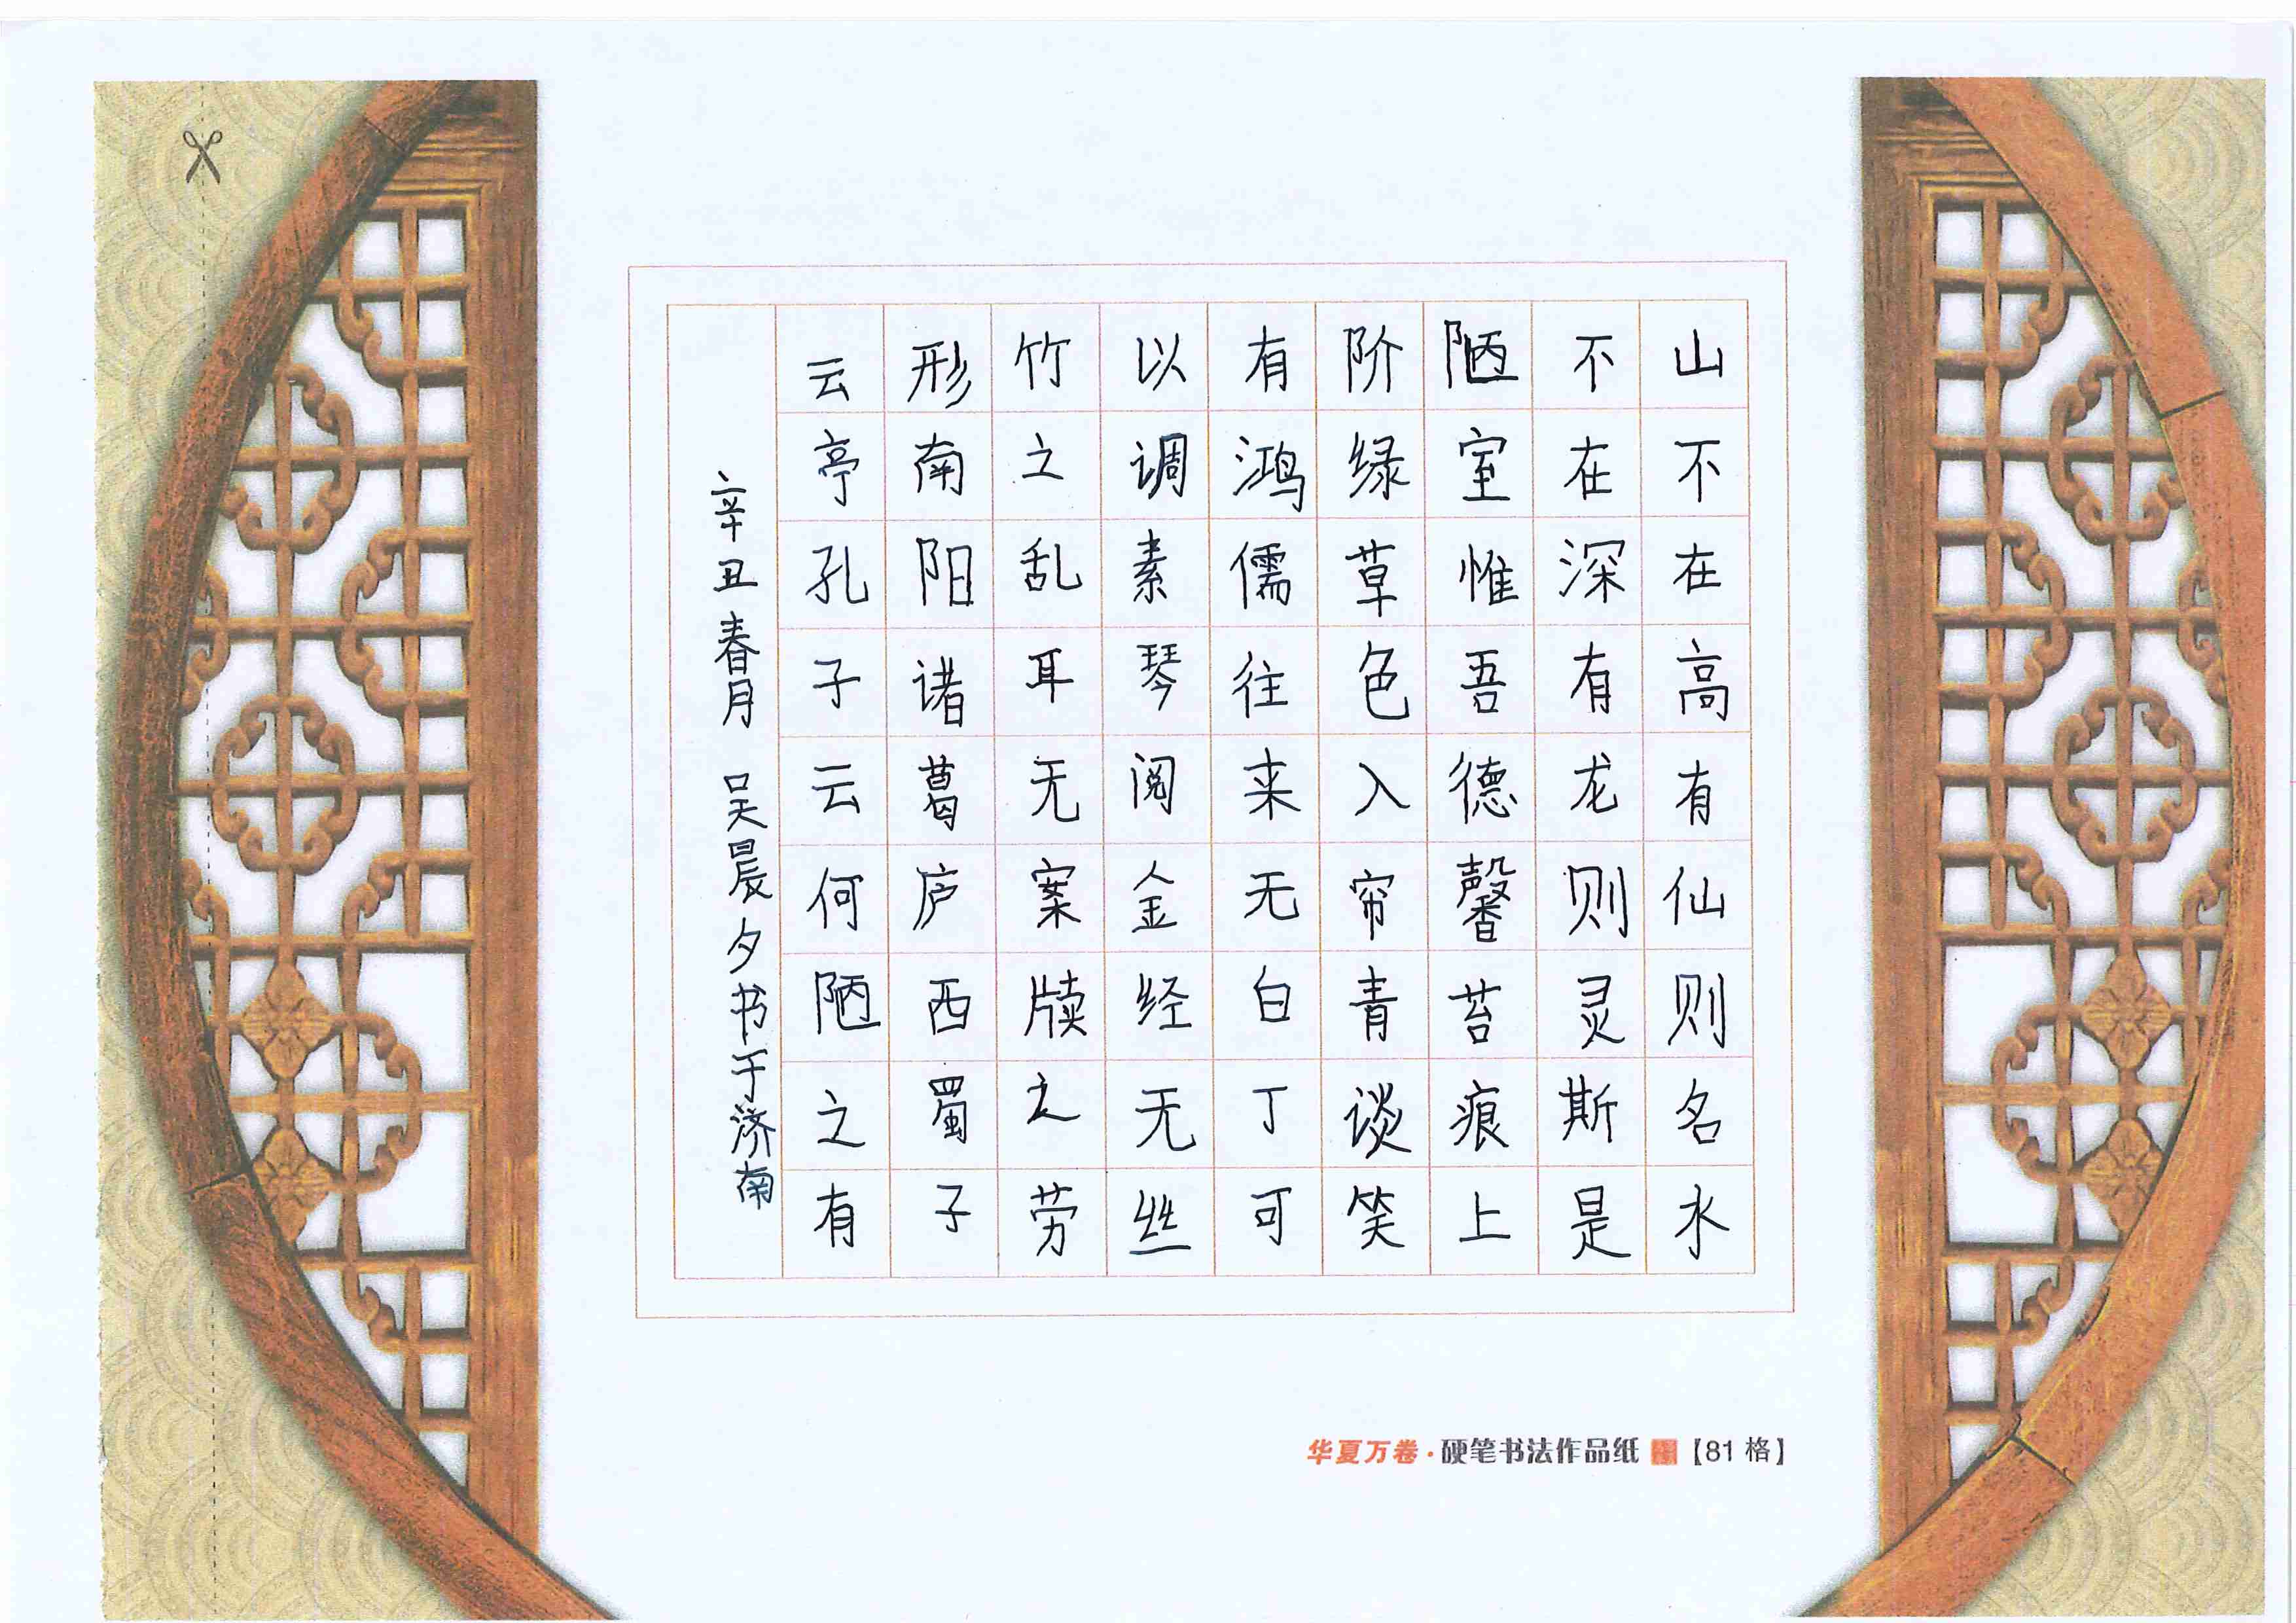 山不在高有仙则名水
不在深有龙则灵斯是
陋室惟吾德馨苔痕上
阶绿草色入帘青谈笑
有鸿儒往来无白丁可
以调素琴阅金经无丝
竹之乱耳无案牍之劳
形南阳诸葛庐西蜀子
云亭孔子云何陋之有
辛丑春月 吴晨夕书于济南
华夏万卷·硬笔书法作品纸【81格】